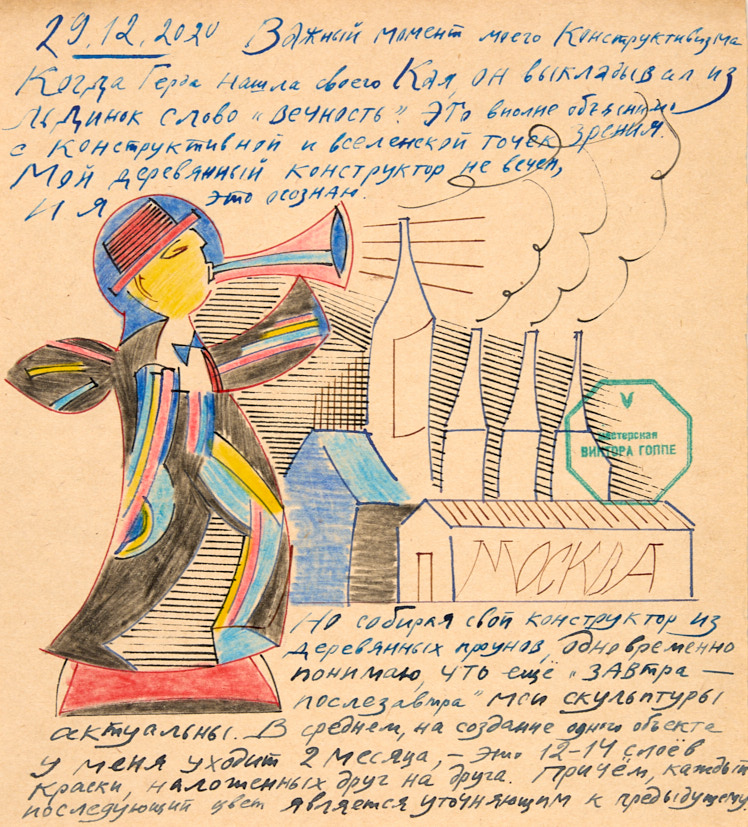 29.12.2020 Важный момент моего Конструктивизма
Когда Герда нашла своего Кая, он выкладывал из
льдинок слово „Вечность". Это вполне объяснимо
с конструктивной и вселенской точек зрения.
Мой деревянный конструктор не вечен,
и я это осознаю.
мастерская
ВИКТОРА ГОППЕ
МОСКВА
Но собирая свой конструктор из
деревянных проунов, одновременно
понимаю, что ещё „завтра —
послезавтра" мои скульптуры
актуальны. В среднем, на создание одного объекта
у меня уходит 2 месяца, – это 12-14 слоёв
краски, наложенных друг на друга. Причём, каждый
последующий цвет является уточняющим к предыдущему.